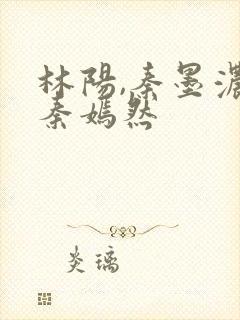 林陽,秦墨濃
秦嫣然
炎璃